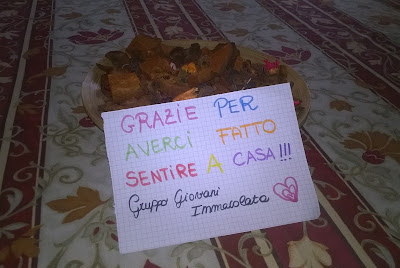 GRAZIE PER
AVERCI FATTO
SENTIRE A CASA!!!
Gruppo Giovani
Immacolata